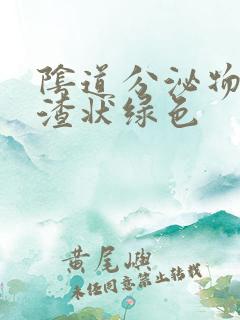 陰道分泌物
渣状绿色
黄尾嶼
未经同意禁止转载